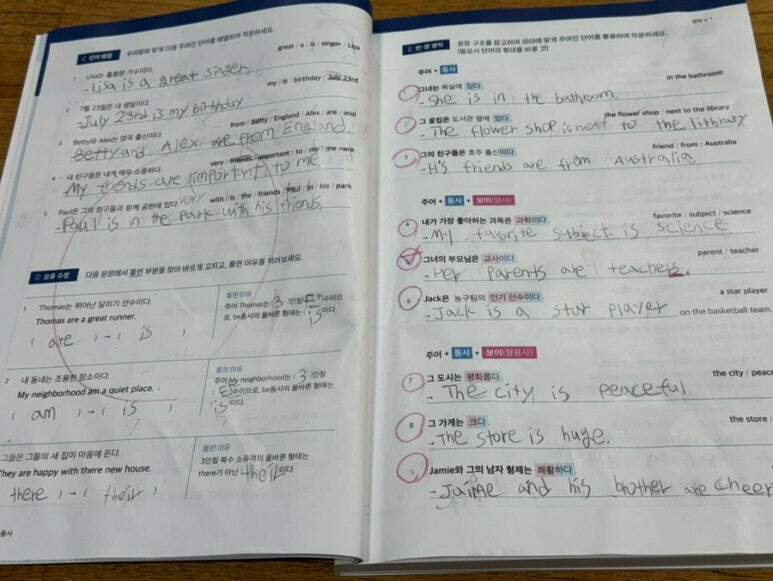 C 단어 배열 우리말에 맞게 다음 주어진 단어를 배열하여 작문하세요.
great / a / is / singer / Lisa
1 Lisa는 훌륭한 가수이다.
- Lisa is a great singer
my / is / birthday / July 23rd
2 7월 23일은 내 생일이다.
- July 23rd is my birthday
from / Betty / England / Alex / are / and
3 Betty와 Alex는 영국 출신이다.
- Betty and Alex are from England
very / friends / important / to / my / me / are
4 내 친구들은 내게 매우 소중하다.
- My friends are important to me
very
with / is / the / friends / Paul / in / his / park
5 Paul은 그의 친구들과 함께 공원에 있다.
- Paul is in the park with his friends
D 오류 수정 다음 문장에서 틀린 부분을 찾아 바르게 고치고, 틀린 이유를 적어보세요.
1 Thomas는 뛰어난 달리기 선수이다.
Thomas are a great runner.
( are ) → ( is )
틀린 이유
주어 Thomas는 ( 3 )인칭 단수이므로, be동사의 올바른 형태는 is이다.
2 내 동네는 조용한 장소이다.
My neighborhood am a quiet place.
( am ) → ( is )
틀린 이유
주어 My neighborhood는 ( 3 )인칭
단수이므로, be동사의 올바른 형태는
is이다.
그들은 그들의 새 집이 마음에 든다.
They are happy with there new house.
there ) → ( their )
틀린 이유
3인칭 복수 소유격의 올바른 형태는
there가 아닌 their이다.
E 문장 구조를 참고하여 의미에 맞게 주어진 단어를 활용하여 작문하세요.
(필요시 단어의 형태를 바꿀 것)
주어 + 동사
in the bathroom
1 그녀는 욕실에 있다.
- She is in the bathroom.
the flower shop / next to the library
2 그 꽃집은 도서관 옆에 있다.
- The flower shop is next to the litbrary
friend / from / Australia
3 그의 친구들은 호주 출신이다.
- His friends are from Australia
주어 + 동사 + 보어(명사)
favorite / subject / science
4 내가 가장 좋아하는 과목은 과학이다.
- My favorite subject is science
parent / teacher
5 그녀의 부모님은 교사이다.
- Her parents are teachers.
a star player
6 Jack은 농구팀의 인기 선수이다.
- Jack is a star player on the basketball team.
주어 + 동사 + 보어(형용사)
the city / peace
7 그 도시는 평화롭다.
- The city is peaceful.
the store /
8 그 가게는 크다.
- The store is huge.
9 Jamie와 그의 남자 형제는 쾌활하다.
- Jaime and his brother are cheer